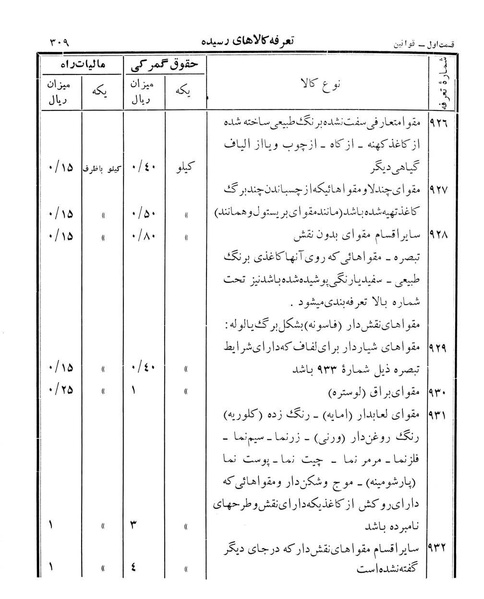 قسمت اول ــ قوانین
تعرفه کالاهای رسیده
۳۰۹
شمارهٔ تعرفه
نوع کالا
حقوق گمرکی
مالیات راه
یکه
میزان ریال
یکه
میزان ریال
۹۲۶ مقوا متعارفی سفت نشده برنگ طبیعی ساخته شده
از کاغذ کهنه ــ از کاه ــ از چوب و یا از الیاف
گیاهی دیگر کیلو ۰/۴۰ کیلو باظرف ۰/۱۵
۹۲۷ مقوای چندلا و مقواهائیکه از چسباندن چند برگ
کاغذ تهیه شده باشد (مانند مقوای بریستول و همانند) » ۰/۵۰ » ۰/۱۵
۹۲۸ سایر اقسام مقوای بدون نقش » ۰/۸۰ » ۰/۱۵
تبصره ــ مقواهائی که روی آنها کاغذی برنگ
طبیعی ــ سفید یا رنگی پوشیده شده باشد نیز تحت
شماره بالا تعرفه بندی میشود .
مقواهای نقش دار (فاسونه) بشکل برگ یا لوله :
۹۲۹ مقواهای شیاردار برای لفاف که دارای شرایط
تبصره ذیل شمارهٔ ۹۳۳ باشد » ۰/۴۰ » ۰/۱۵
۹۳۰ مقوای براق (لوستره) » ۱ » ۰/۲۵
۹۳۱ مقوای لعابدار (امایه) ــ رنگ زده (کلوریه)
رنگ روغن دار (ورنی) ــ زرنما ــ سیم نما ــ
فلزنما ــ مرمر نما ــ چیت نما ــ پوست نما
(پارشومینه) ــ موج و شکن دار و مقواهائی که
دارای روکش از کاغذیکه دارای نقش و طرحهای
نامبرده باشد » ۳ » ۱
۹۳۲ سایر اقسام مقواهای نقش دار که در جای دیگر
گفته نشده است » ٤ » ۱